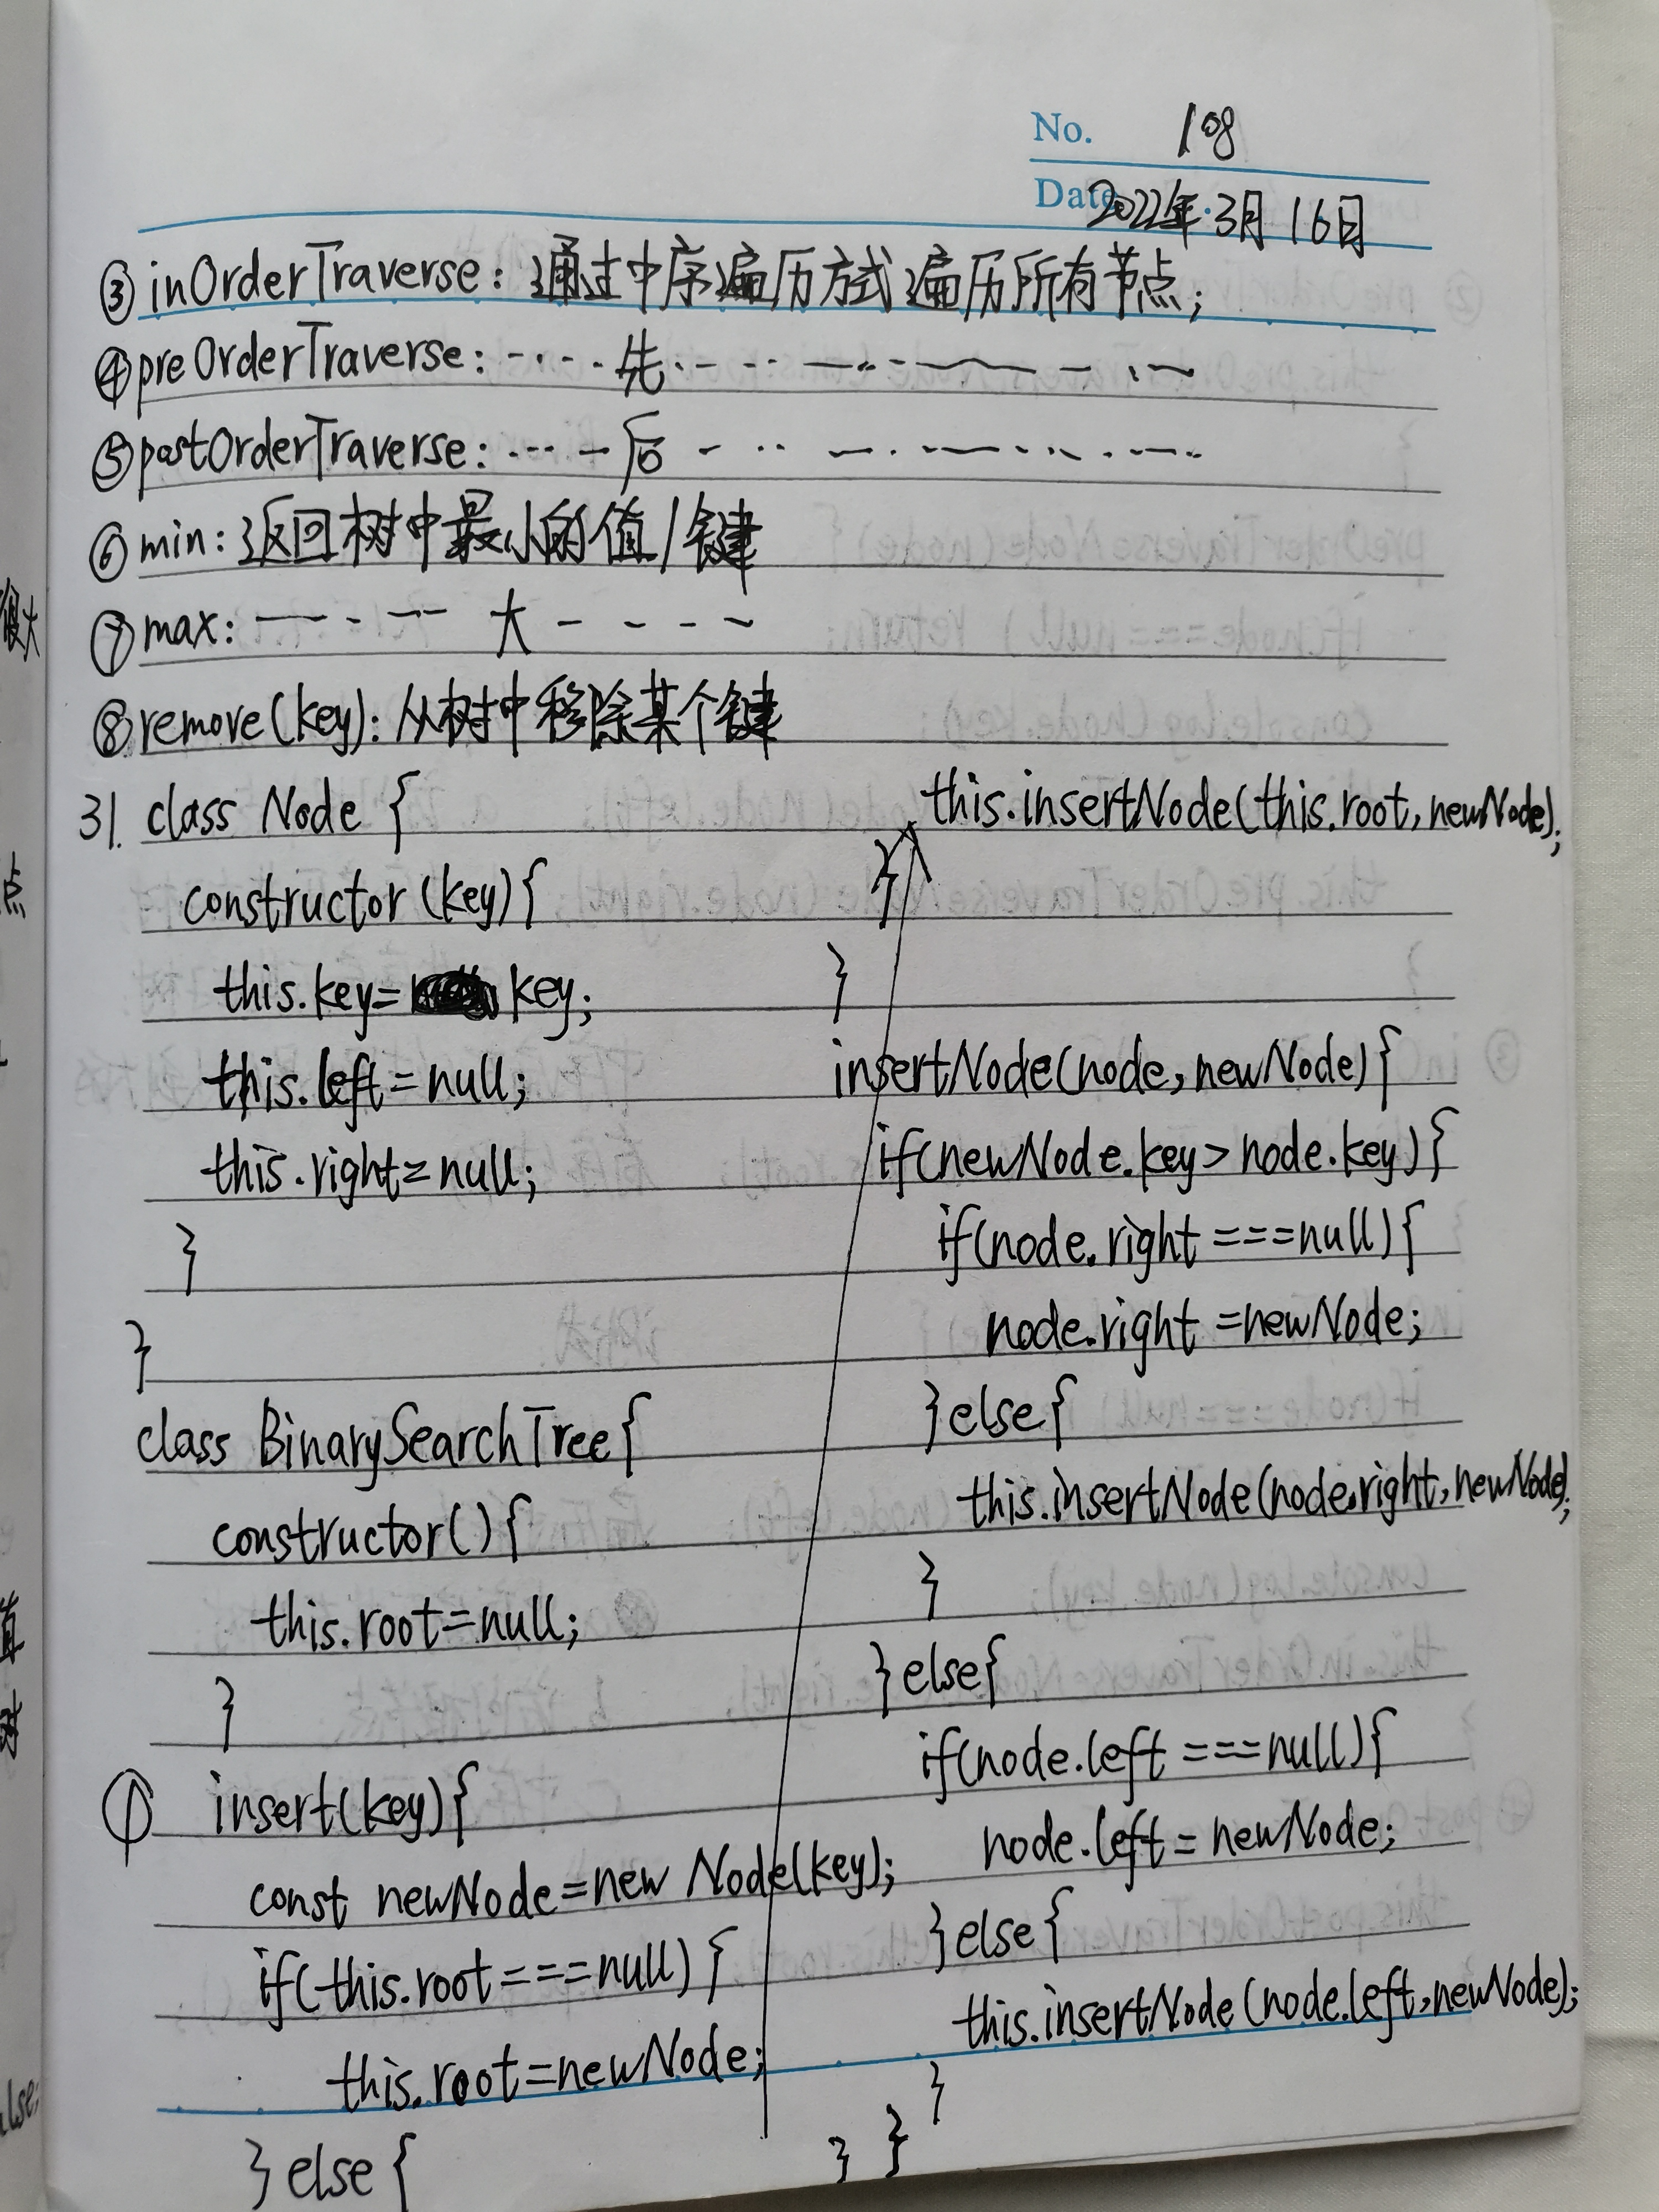 No. 108
Date 2022年.3月16日
③inOrderTraverse：通过中序遍历方式遍历所有节点；
④preOrderTraverse：----先---------
⑤postOrderTraverse：----后---------
⑥min：返回树中最小的值/键
⑦max：-----大----
⑧remove(key)：从树中移除某个键
31. class Node {
constructor (key){
this.key= key;
this.left=null;
this.right=null;
}
}
class BinarySearchTree{
constructor(){
this.root=null;
}
① insert(key){
const newNode=new Node(key);
if(this.root===null) {
this.root=newNode;
} else {
this.insertNode(this.root,newNode);
}
}
insertNode(node,newNode){
if(newNode.key>node.key){
if(node.right===null){
node.right=newNode;
}else{
this.insertNode(node.right,newNode);
}
}else{
if(node.left===null){
node.left=newNode;
}else{
this.insertNode(node.left,newNode);
}
} }